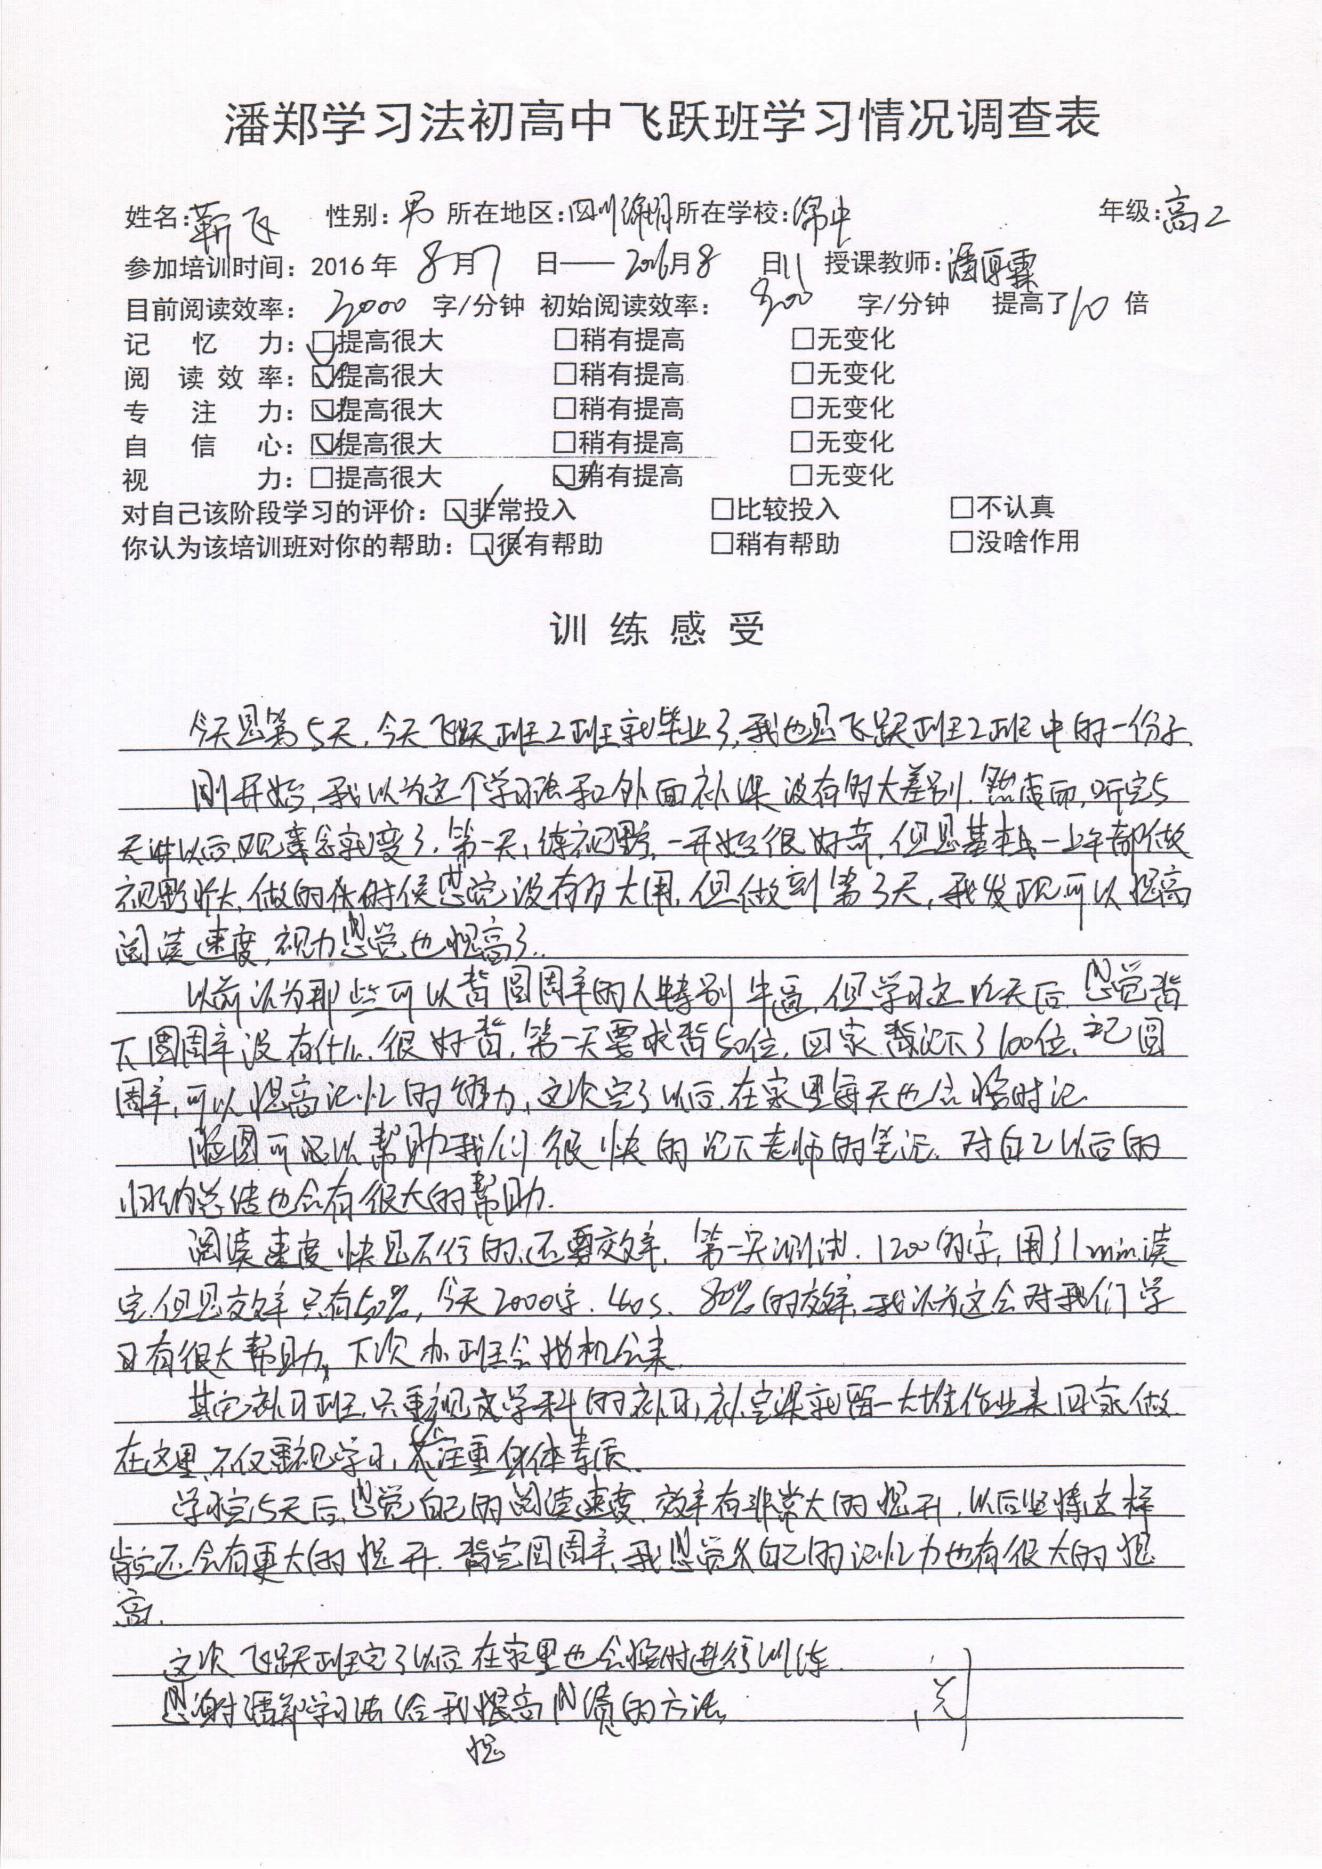 潘郑学习法初高中飞跃班学习情况调查表
姓名:靳飞 性别:男 所在地区:四川绵阳 所在学校:绵中 年级:高2
参加培训时间:2016年 8月7 日——2016月8 日11 授课教师:潘厚霖
目前阅读效率: 3000 字/分钟 初始阅读效率: 300 字/分钟 提高了10倍
记忆力:☑提高很大 □稍有提高 □无变化
阅读效率:☑提高很大 □稍有提高 □无变化
专注力:☑提高很大 □稍有提高 □无变化
自信心:☑提高很大 □稍有提高 □无变化
视力:□提高很大 ☑稍有提高 □无变化
对自己该阶段学习的评价:☑非常投入 □比较投入 □不认真
你认为该培训班对你的帮助:☑很有帮助 □稍有帮助 □没啥作用
训练感受
今天是第5天,今天飞跃班2班就毕业了,我也是飞跃班2班中的一份子.
刚开始,我以为这个学习法和外面补课没有多大差别.然而,听完5
天课以后,观念就变了.第一天,练视野,一开始很好奇,但是基本一上午都做
视野扩大,做的时候感觉没有多大用,但做到第3天,我发现可以提高
阅读速度,视力感觉也提高了.
以前认为那些可以背圆周率的人特别牛逼,但学习这几天后,感觉背
下圆周率没有什么,很好背,第一天要求背50位,回家背记下了100位,记圆
周率,可以提高记忆的能力,这次完了以后,在家里每天也会按时记.
脑图可以帮助我们很快的记下老师的笔记.对自己以后的
归纳总结也会有很大的帮助.
阅读速度快是不行的,还要效率.第一天测试.1200的字,用了1min读
完,但是效率只有50%,今天2000字.40s.80%的效率,我认为这会对我们学
习有很大帮助,下次办班会找机会来.
其它补习班,只重视文学科的补习,补完课就留一大堆作业来回家做.
在这里,不仅重视学习,还注重身体素质.
学习完5天后,感觉自己的阅读速度,效率有非常大的提升,以后坚持这样
肯定还会有更大的提升.背完圆周率,我感觉自己的记忆力也有很大的提
高.
这次飞跃班完了以后在家里也会按时进行训练.
感谢潘郑学习法给我提高成绩的方法.
提